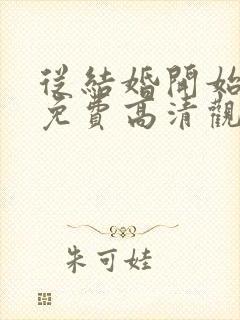 從結婚開始
免費高清觀
朱可娃